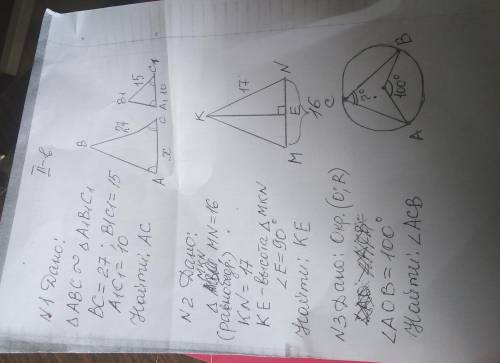 II-в
N1 Дано:
△ABC ∾ △A1B1C1
BC = 27 ; B1C1 = 15
A1C1 = 10
Найти: AC
B
27
A
x
C
B1
15
A1
10
C1
N2 Дано:
△ MKN MN=16
(равнобедр.)
KN = 17
KE - высота △MKN
∠E = 90°
Найти: KE
K
17
N
E
M
16
N3 Дано: Окр. (O; R)
∠AOB = 100°
Найти: ∠ACB
C
?°
100°
B
A